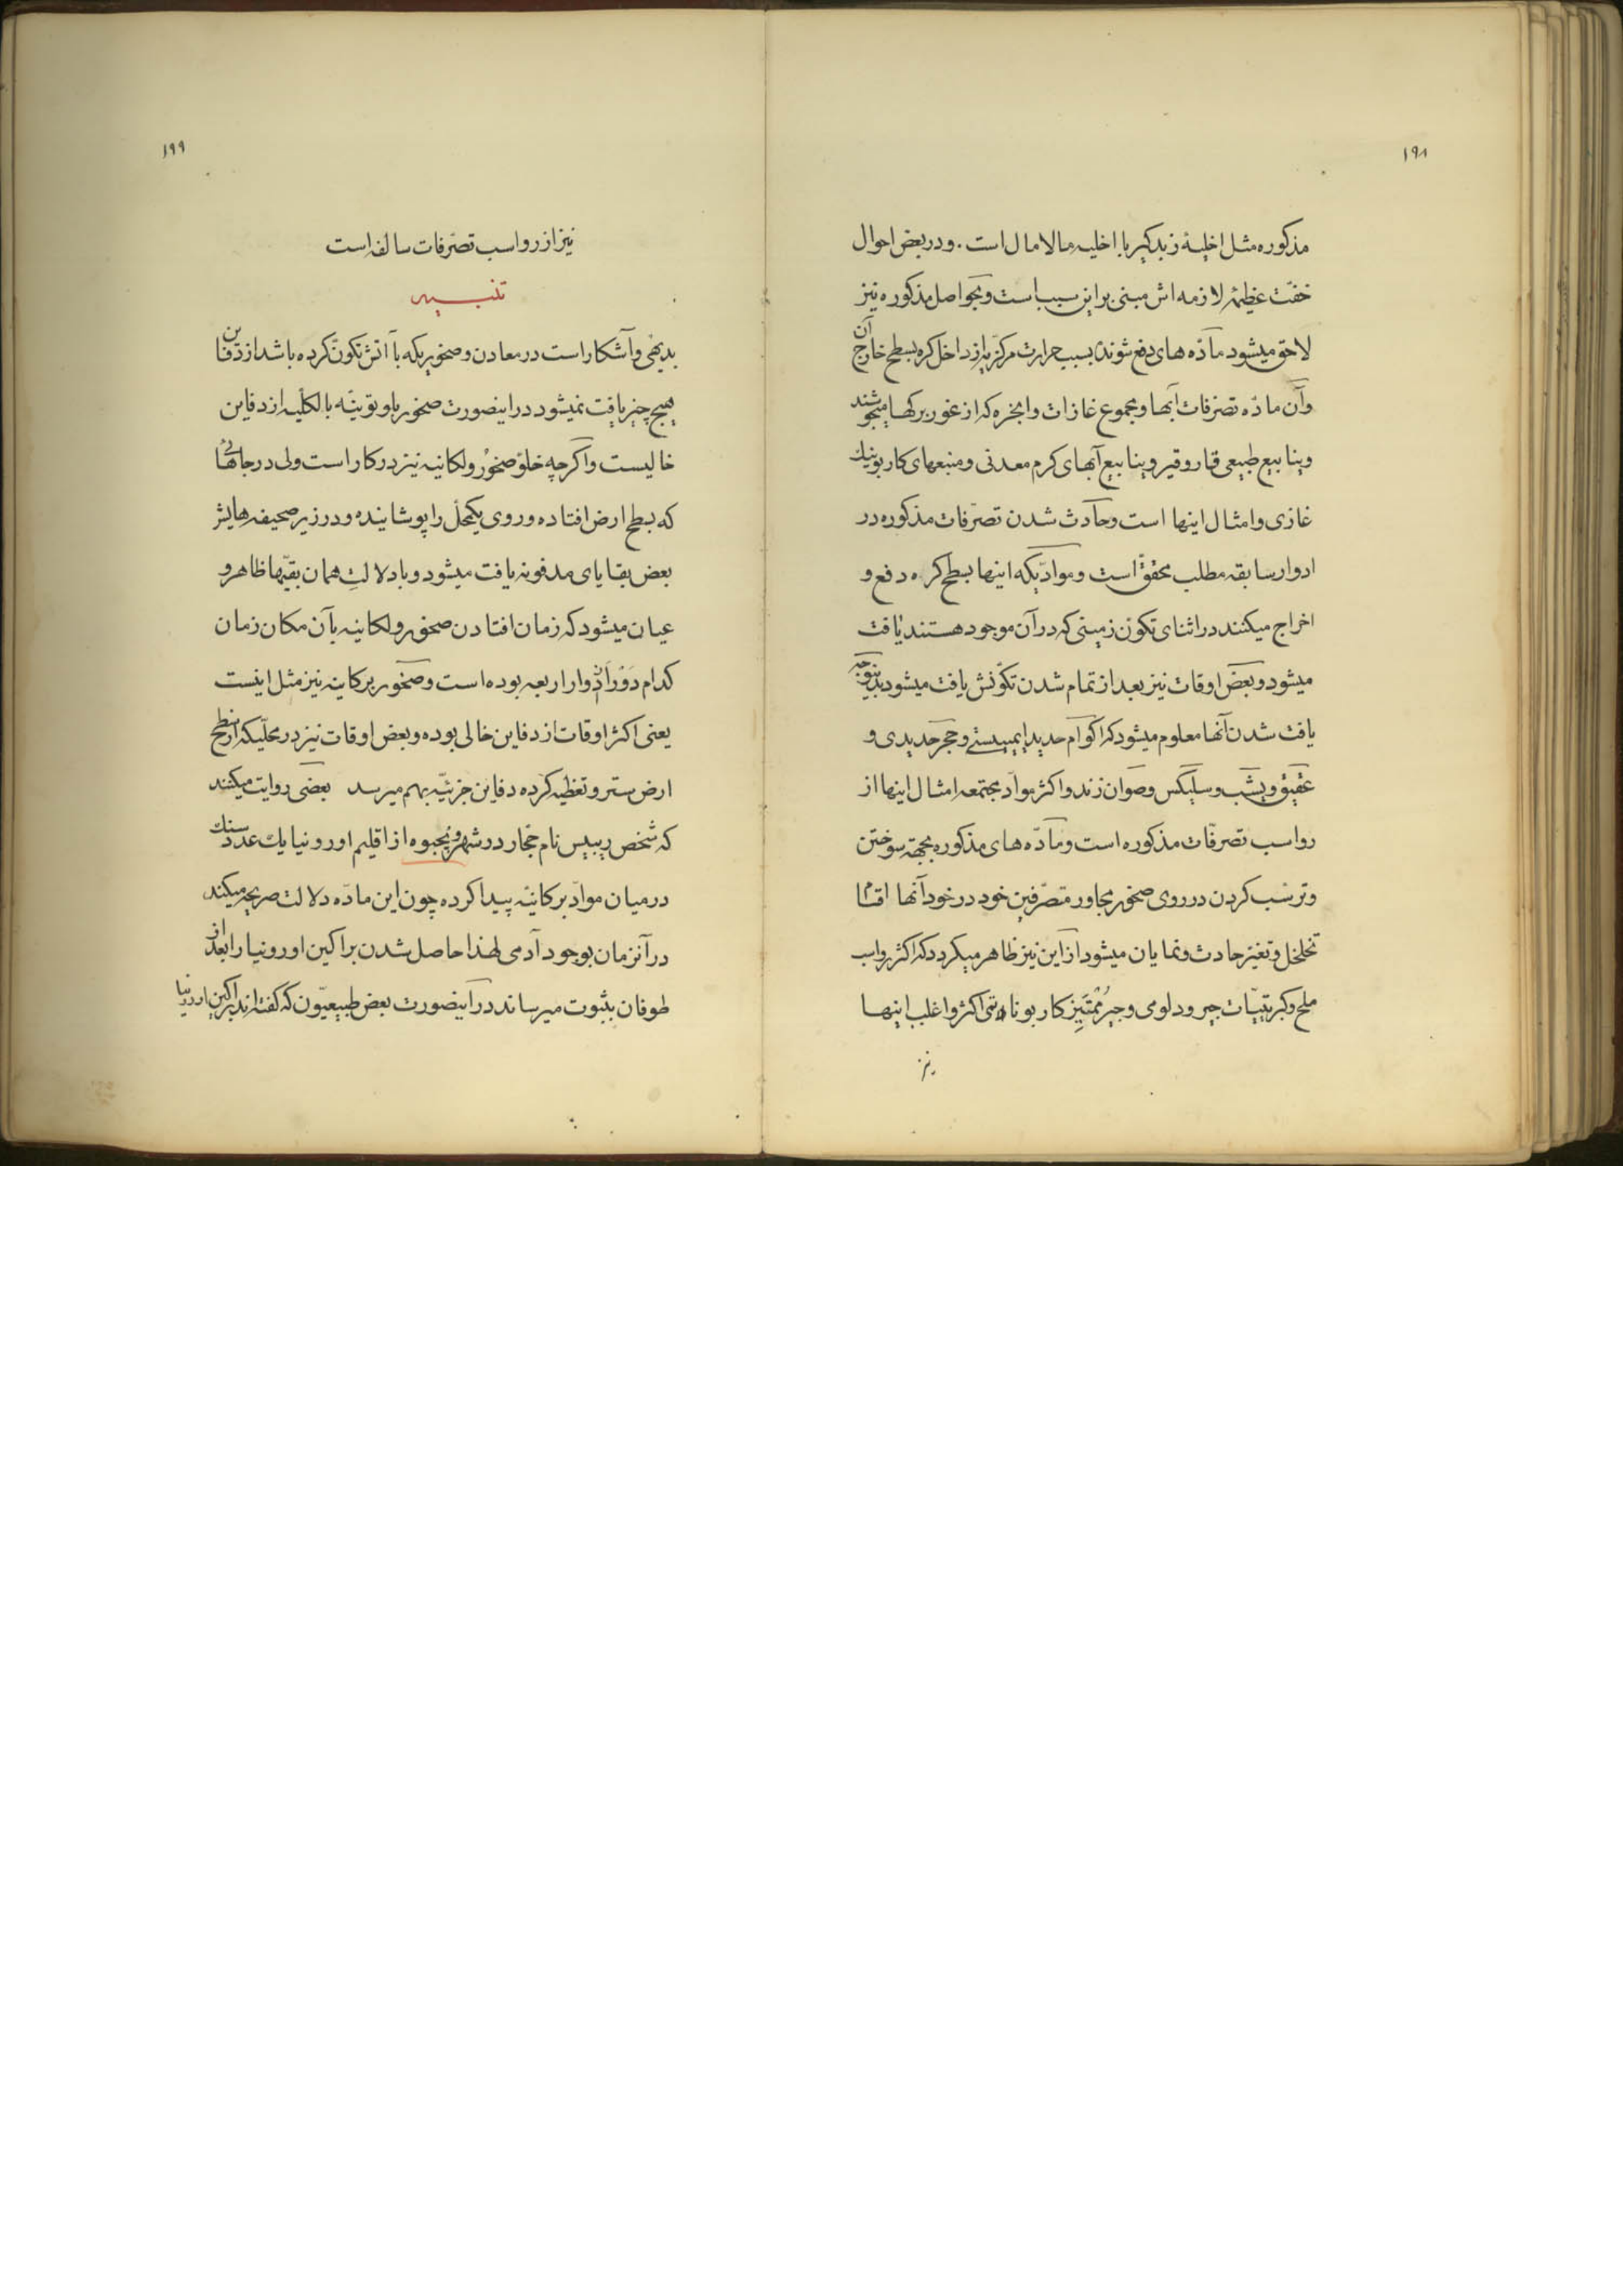 ۱۹۸
مذکوره مثل اخلیهٔ زبدکیر با اخلیه مالامال است. و در بعض احوال
خفّت عظیمهٔ لازمه اش مبنی بر این سبب است و بحواصل مذکوره نیز
لاحق میشود مآدّه های دفع شونده بسبب حرارت مرکزیه از داخل کره بسطح خارج آن
و آن مادّه تصرفات آبها و مجموع غازات و ابخره که از غور برکها میجوشند
و ینابیع طبیعی قار و قیر و ینابیع آبهای کرم معدنی و منبعهای کاربونیك
غازی و امثال اینها است و حآدث شدن تصرّفات مذکوره در
ادوار سابقه مطلب محقّق است و موادّیکه اینها بسطح کره دفع و
اخراج میکنند در اثنای تکوّن زمینی که در آن موجود هستند یافت
میشود و بعض اوقات نیز بعد از تمام شدن تکوّنش یافت میشود بدینوجه
یافت شدن آنها معلوم میشود که اکوام حدید و حجر حدیدی و
عقیق و یشب و سلیکس و صوان زند و اکثر موادّ مجتمعه امثال اینها از
رواسب تصرفّات مذکوره است و مآدّه های مذکوره بجهة سوختن
و ترسّب کردن در روی صخور مجاور متصرّفین خود در خود آنها اقسام
تخلخل و تغیّر حادث و نمایان میشود از این نیز ظاهر میکردد که اکثر رواسب
ملح و کبریتیّات جیر و دلومی و جیر کاربوناتی اکثر و اغلب اینها
نیز
۱۹۹
نیز از رواسب تصّرفات سالفه است
تنبیه
بدیهی و آشکار است در معادن و صخوریکه با آتش تکوّن کرده باشد از دفاین
هیچ چیز یافت نمیشود در اینصورت صخور پلوتونیّه بالکلّیه از دفاین
خالیست و اکرچه خلوّ صخور ولکانیه نیز در کار است ولی در جاهائی
که بسطح ارض افتاده و روی یکمحلّ را پوشانیده و در زیر صحیفه هایش
بعض بقایای مدفونه یافت میشود و با دلالتِ همان بقیّها ظاهر و
عیان میشود که زمان افتادن صخور ولکانیه بآن مکان زمان
کدام دَوْر از ادوار اربعه بوده است و صخور برکانیه نیز مثل اینست
یعنی اکثر اوقات از دفاین خالی بوده و بعض اوقات نیز در محلّیکه از سطح
ارض ستر و تغطیه کرده دفاین جزئیّه بهم میرسد بعضی روایت میکنند
که شخص نام حجّار در شهر از اقلیم اورونیا یك عدد سنك
در میان موادّ برکانیّه پیدا کرده چون این مادّه دلالت صریحه میکند
در آنزمان بوجود آدمی لهذا حاصل شدن براکین اورونیا را بعد از
طوفان بثبوت میرساند در اینصورت بعض طبیعیّون که کفته اند براکین اورونیا